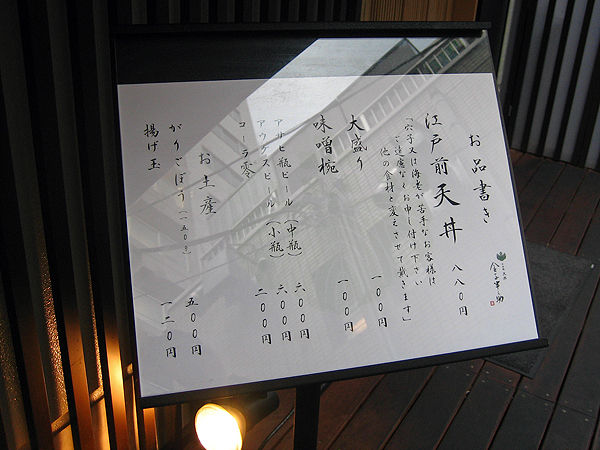 お品書き
金子半之助
江戸前天丼 八八〇円
「穴子又は海老が苦手なお客様は
ご遠慮なくお申し付け下さい
他の食材と変えさせて戴きます」
大盛り 一〇〇円
味噌椀 一〇〇円
アサヒ瓶ビール(中瓶) 六〇〇円
アウグスビール(小瓶) 六〇〇円
コーラ零 二〇〇円
お土産
がりごぼう(一五〇g) 五〇〇円
揚げ玉 一二〇円